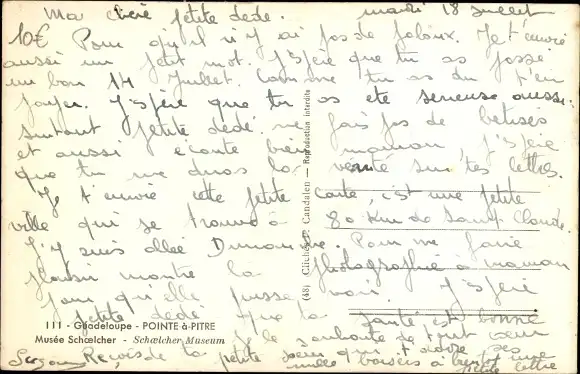 Ma chère petite dédé. mardi 18 juillet
10€ Pour qu'il n'y ai pas de jaloux. Je t'envoie
aussi un petit mot. J'spère que tu as passé
un bon 14 Juillet. Comme tu as du t'en
payer. J'spère que tu as été serieuse aussi.
surtout petite dédé ne fais pas de betises
et aussi écoute bien maman. J'spère
que tu me diras la verité sur tes lettres.
Je t'envoie cette petite carte, c'est une petite
ville qui se trouve à 80 Km de Saint Claude.
J'y suis allée Dimanche. Pour me faire
plaisir montre la photographie à maman
pour qu'elle puisse voir. J'spère
petite dédé que ta santé est bonne
111 - Guadeloupe - POINTE-à-PITRE
Musée Schœlcher - Schœlcher Museum
je le souhaite de tout cœur
Reçois de ta petite sœur qui t'adore ses
mille baisers à bientot une
petite lettre
(48) Clichés F. Candalen — Reproduction interdite